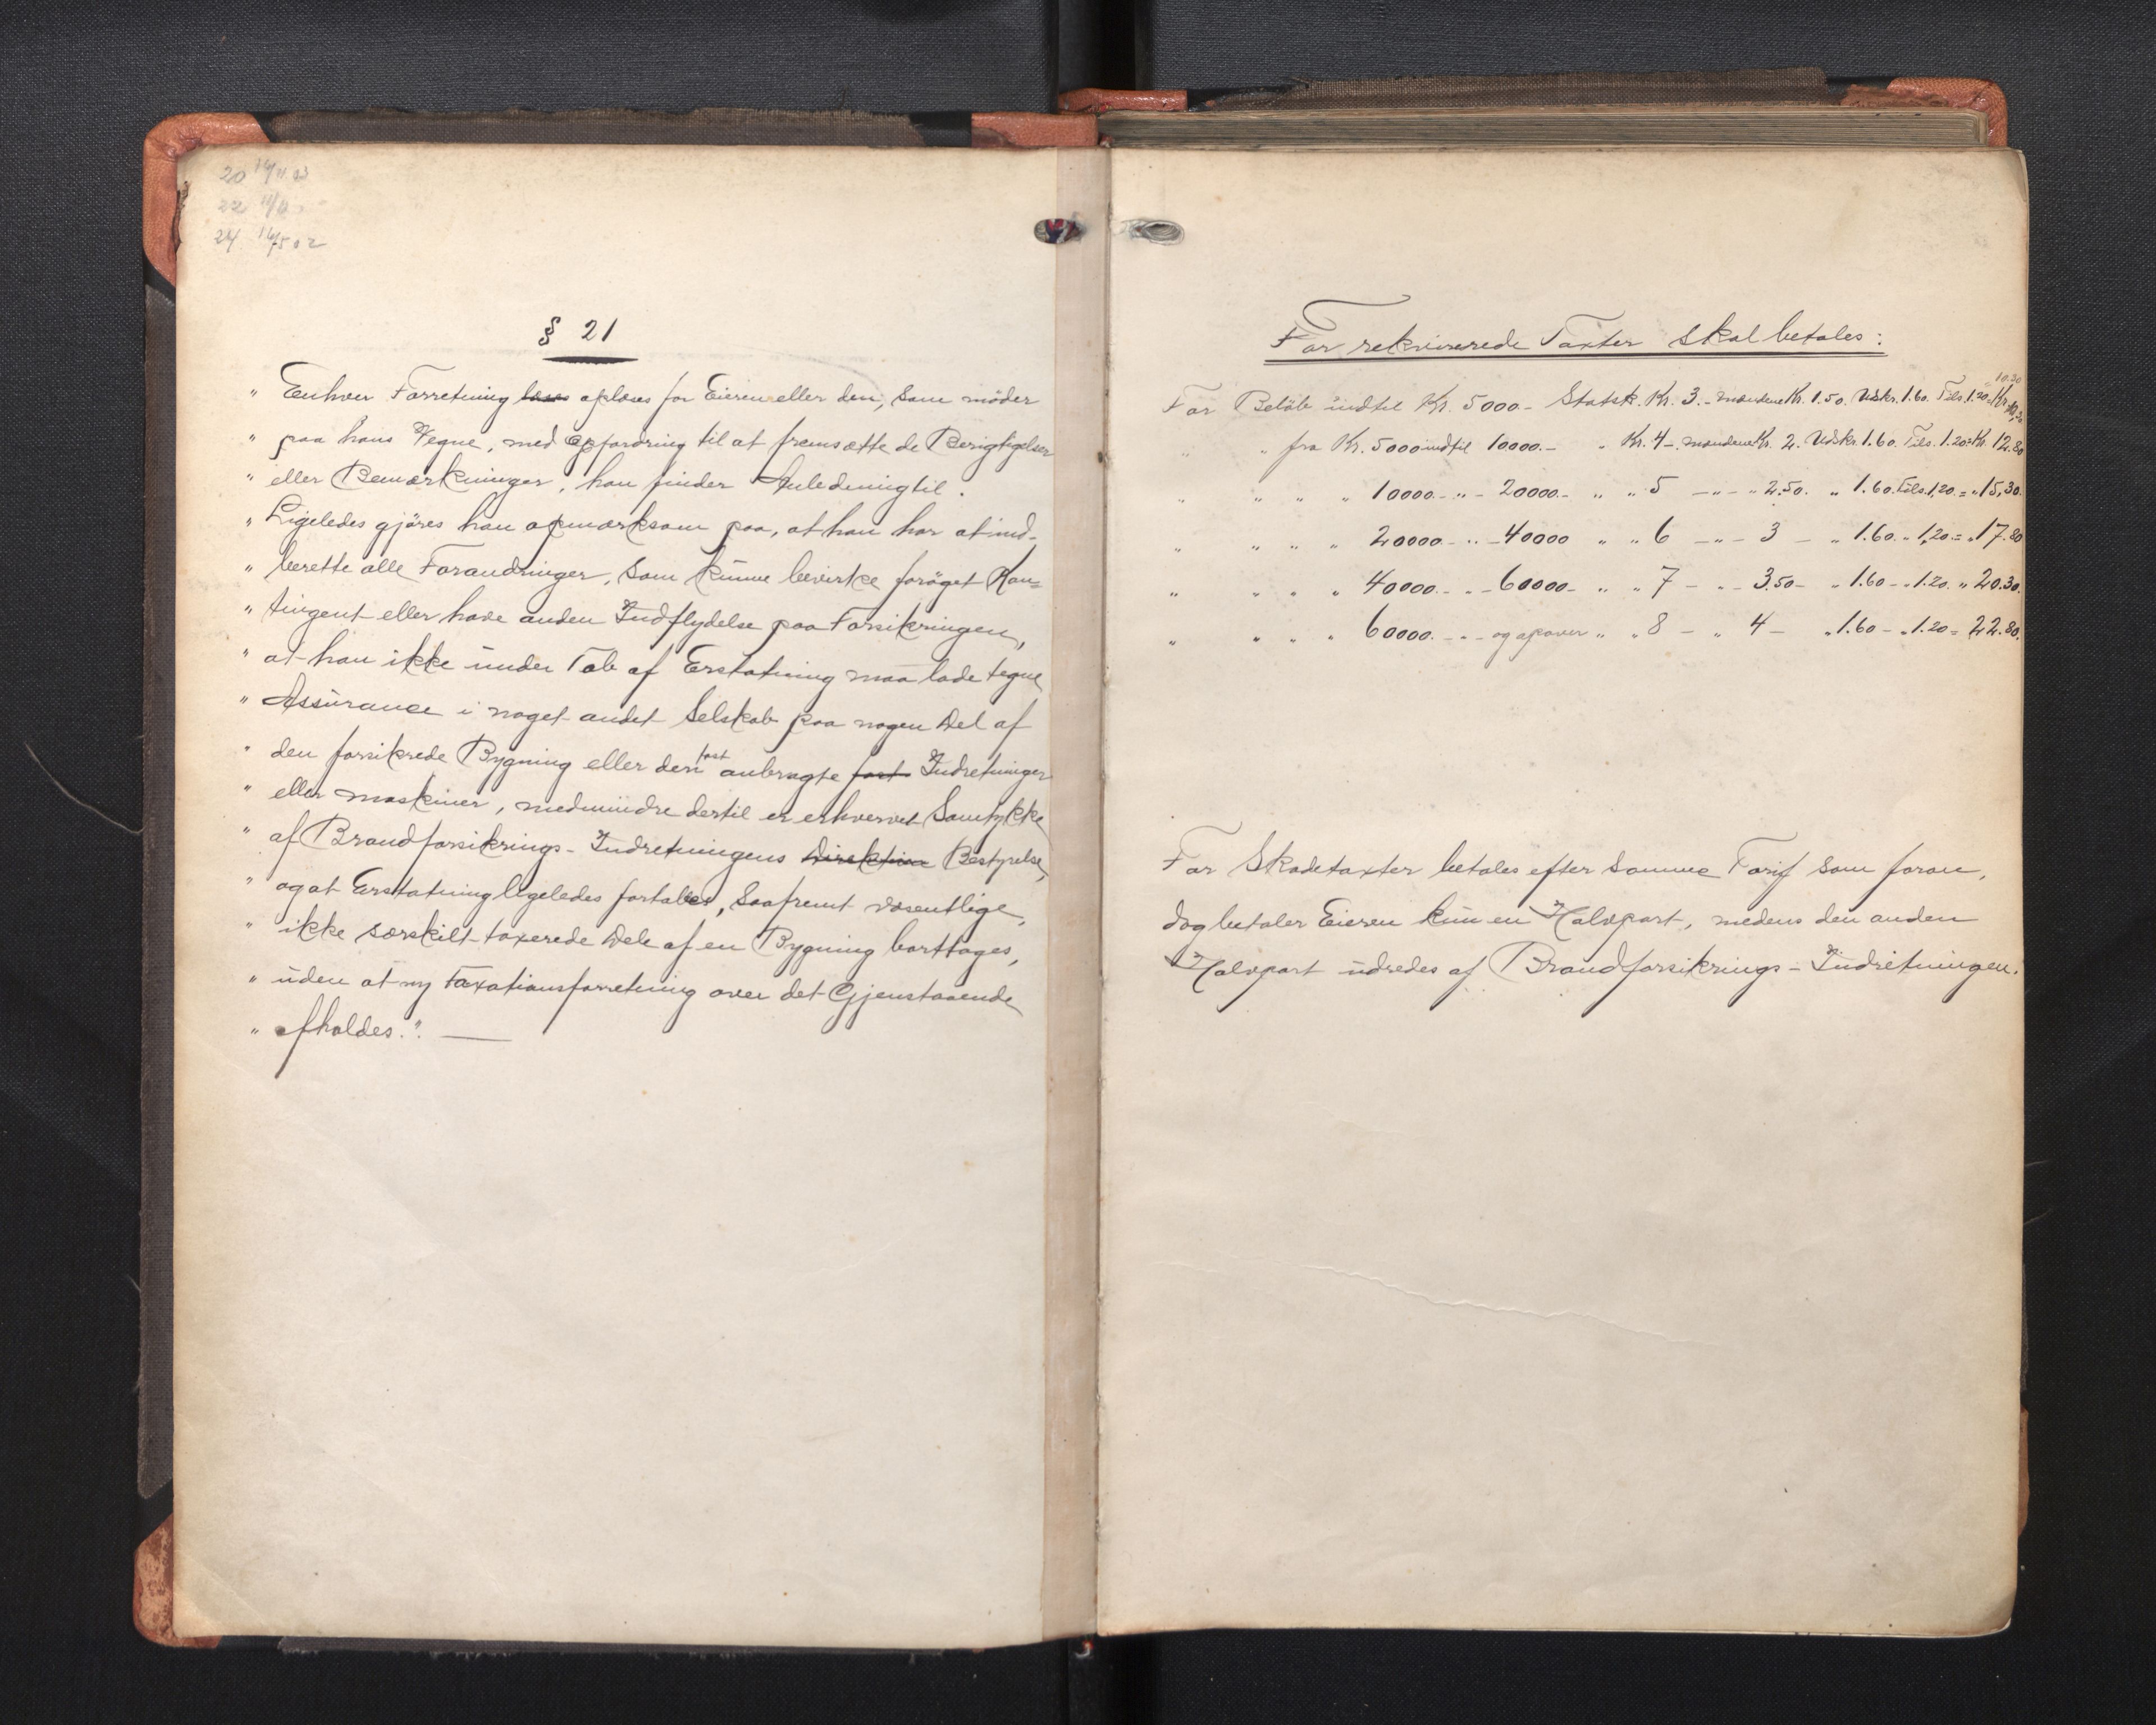 20 14/11 03
22 11/8 -
24 14/5 02
§ 21
" Enhver Forretning læses oplæses for Eieren eller den, som möder
" paa hans Vegne, med Opfordring til at fremsætte de Berigtigelser
" eller Bemærkninger, han finder Anledning til.
" Ligeledes gjöres han opmærksom paa, at han har at ind-
" berette alle Forandringer, som kunne bevirke foröget Kon=
" tingent eller have anden Indflydelse paa Forsikringen,
" at han ikke under Tab af Erstatning maa lade tegne
" Assurance i noget andet Selskab paa nogen Del af
" den forsikrede Bygning eller den fast anbragte fast Indretninger
" eller maskiner, medmindre dertil er erhvervet Samtykke
" af Brandforsikrings-Indretningens Direktion Bestyrelse,
" og at Erstatning ligeledes fortabes, saafremt væsentlige,
" ikke særskilt taxerede Dele af en Bygning borttages,
" uden at ny Taxationsforretning over det Gjenstaaende
" afholdes." —
For rekvirerede Taxter skal betales:
For Belöb indtil Kr. 5000.- Statsk. Kr. 3.- mændene Kr. 1.50. Udskr. 1.60. Tils. 1.20 = Kr. 10.30
" " fra Kr. 5000 indtil 10000.- " Kr. 4-. mændene Kr. 2. Udskr. 1.60. Tils. 1.20 = Kr. 12.80
" " " " 10000.- " - 20000.- " " 5 - " - " 2.50. " 1.60. Tils. 1,20. = " 15,30.
" " " " 20000.- " - 40000 " " 6 - " - 3 - " 1.60. " 1,20. = " 17.80
" " " " 40000.- " - 60000.- " " 7 - " - 3.50 - " 1.60 - " 1.20. " 20.30.
" " " " 60000.- " - og opover " " 8 - " 4 - " 1.60 - " 1.20 = 22.80.
For Skadetaxter betales efter samme Tarif som foran,
dog betaler Eieren kun en Halvpart, medens den anden
Halvpart udredes af Brandforsikrings-Indretningen.